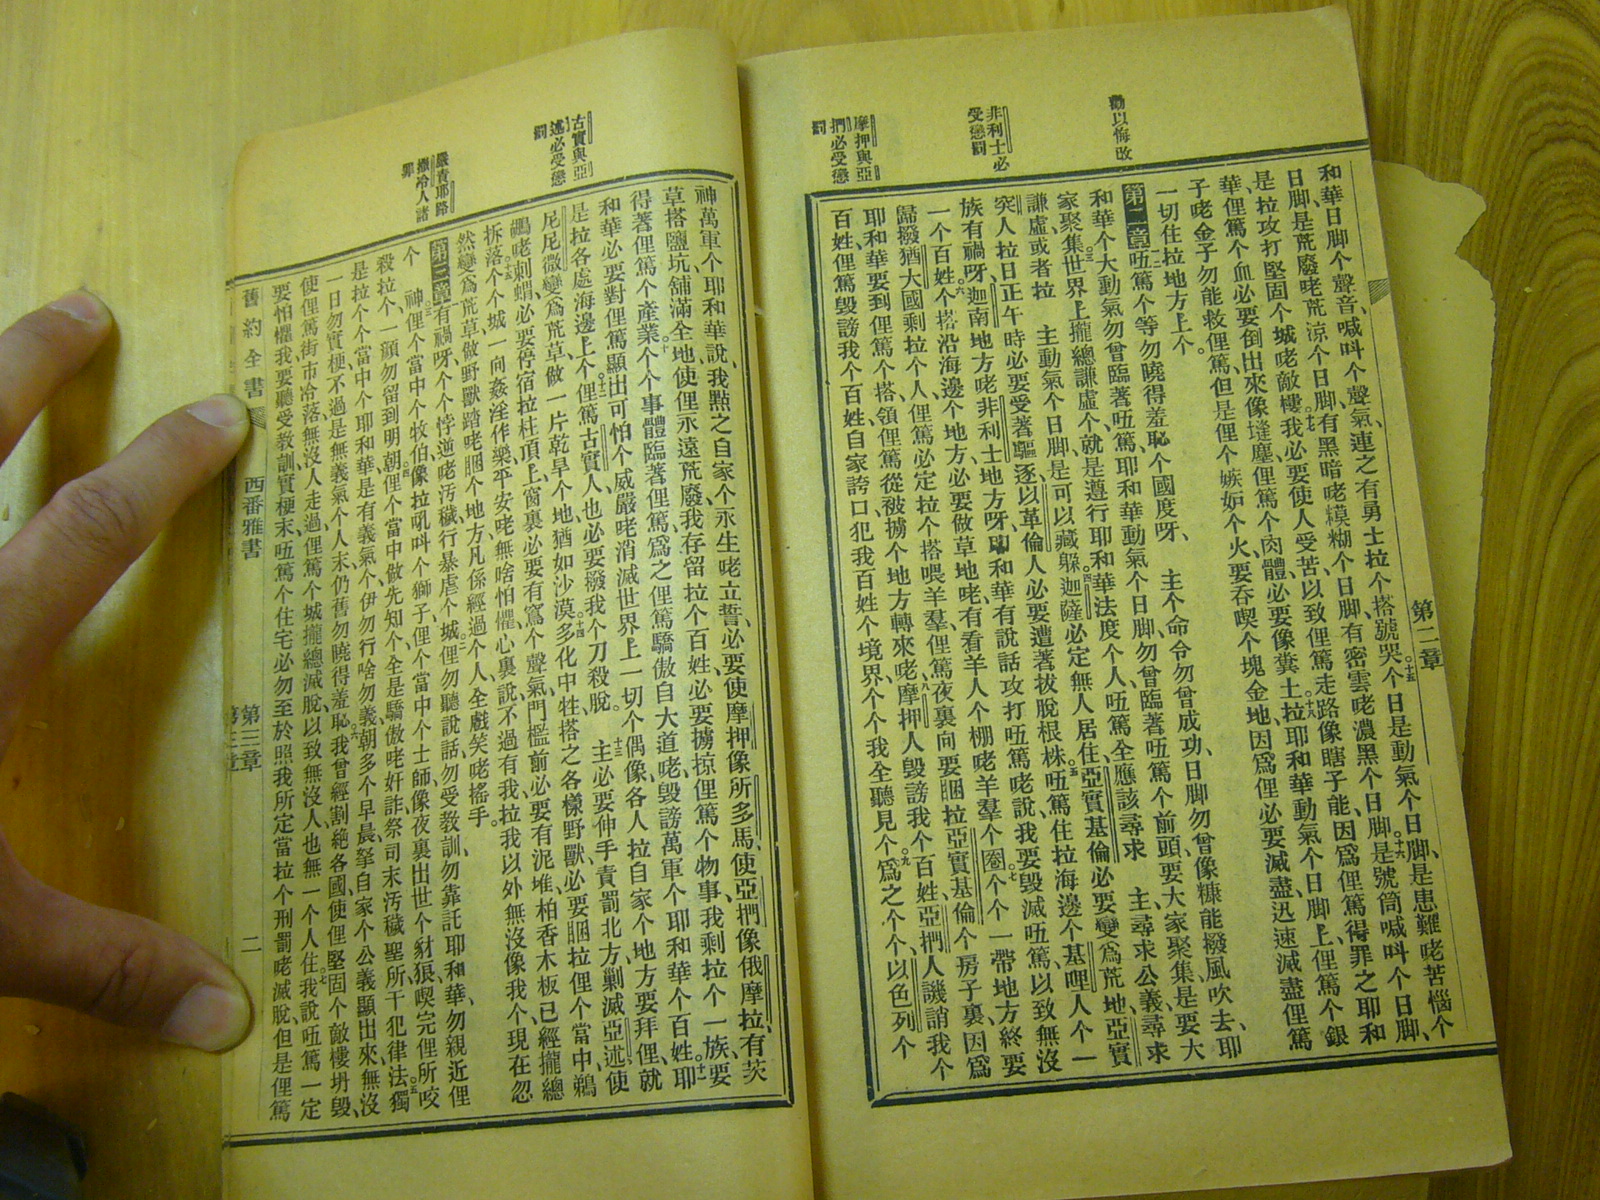 第二章
和華日脚个聲音、喊呌个聲氣連之有勇士拉个搭號哭。十五个日是動氣个日脚、是患難咾苦惱个
日脚是荒廢咾荒涼个日脚、有黑暗咾糢糊个日脚、有密雲咾濃黑个日脚、十六是號筒喊呌个日脚、
是拉攻打堅固个城咾敵樓。十七我必要使人受苦以致俚篤走路像瞎子能、因爲俚篤得罪之耶和
華、俚篤个血必要倒出來像𡏖塵、俚篤个肉體必要像糞土。十八拉耶和華動氣个日脚上、俚篤个銀
子咾金子勿能救俚篤、但是俚个嫉妒个火、要吞喫个塊金地、因爲俚必要滅盡、迅速滅盡俚篤
一切住拉地方上个。
勸以悔改
第二章 一二呒篤个等勿曉得羞恥个國度呀、主个命令勿曾成功、日脚勿曾像糠能撥風吹去、耶
和華个大動氣勿曾臨著呒篤、耶和華動氣个日脚勿曾臨著呒篤个前頭、要大家聚集、是要大
家聚集。三世界上攏總謙虛个、就是遵行耶和華法度个人、呒篤全應該尋求 主、尋求公義、尋求
謙虛、或者拉 主動氣个日脚、是可以藏躱。四迦薩必定無人居住、亞實基倫必要變爲荒地、亞實
非利士必受懲罰
突人拉日正午時必要受著驅逐、以革倫人必要遭著拔脫根株。五呒篤住拉海邊个基哩人个一
族有禍呀、迦南地方咾非利士地方呀、耶和華有說話攻打呒篤咾說、我要毀滅呒篤、以致無沒
一个百姓。六个搭沿海邊个地方必要做草地咾有看羊人个棚咾羊羣个圈。七个个一帶地方終要
歸撥猶大國剩拉个人、俚篤必定拉个搭喂羊羣、俚篤夜裏向要睏拉亞實基倫个房子裏、因爲
耶和華要到俚篤个搭、領俚篤從被擄个地方轉來咾。八摩押人毀謗我个百姓、亞捫人譏誚我个
摩押與亞捫必受懲罰
百姓、俚篤毀謗我个百姓、自家誇口犯我百姓个境界、个个我全聽見个。九爲之个个、以色列个
神萬軍个耶和華說、我㸃之自家个永生咾立誓、必要使摩押像所多馬、使亞捫像俄摩拉、有茨
草搭鹽坑舖滿全地、使俚永遠荒廢、我存留拉个百姓、必要擄掠俚篤个物事、我剩拉个一族、要
得著俚篤个產業。十个个事體臨著俚篤、爲之俚篤驕傲自大道咾毀謗萬軍个耶和華个百姓。十一耶
和華必要對俚篤顯出可怕个威嚴咾消滅世界上一切个偶像、各人拉自家个地方要拜俚、就
古實與亞述必受懲罰
是拉各處海邊上个。十二俚篤古實人也必要撥我个刀殺脫。十三主必要伸手責罰北方、剿滅亞述、使
尼尼微變爲荒草、做一片乾旱个地、猶如沙漠。十四多化中牲搭之各樣野獸、必要睏拉俚个當中、鵜
鶘咾刺蝟、必要停宿拉柱頂上、窗裏必要有窩个聲氣、門檻前必要有泥堆、柏香木板已經攏總
拆落。十五个个城、一向姦淫作樂平安咾無啥怕懼、心裏說不過有我拉、我以外無沒像我个、現在忽
然變爲荒草、做野獸踏咾睏个地方、凡係經過个人、全戲笑咾搖手。
嚴責耶路撒冷人諸罪
第三章 一有禍呀、个个悖逆咾汚穢、行暴虐个城。二俚勿聽說話、勿受教訓、勿靠託耶和華、勿親近俚
个 神。三俚个當中个牧伯像拉吼呌个獅子、俚个當中个士師、像夜裏出世个豺狼、喫完俚所咬
殺拉个、一顆勿留到明朝。四俚个當中做先知个、全是驕傲咾奸詐、祭司末汚穢聖所、干犯律法。五獨
是拉个个當中个耶和華、是有義氣个、伊勿行啥勿義、朝多个早晨、拏自家个公義顯出來、無沒
一日勿實梗、不過是無義氣个人末、仍舊勿曉得羞恥。六我曾經割絕各國、使俚堅固个敵樓坍毀、
使俚篤街市冷落、無沒人走過、俚篤个城攏總滅脫、以致無沒人、也無一个人住。七我說呒篤一定
要怕懼我、要聽受教訓、實梗末、呒篤个住宅、必勿至於照我所定當拉个刑罰咾滅脫、但是俚篤
舊約全書 西番雅書 第三章 二